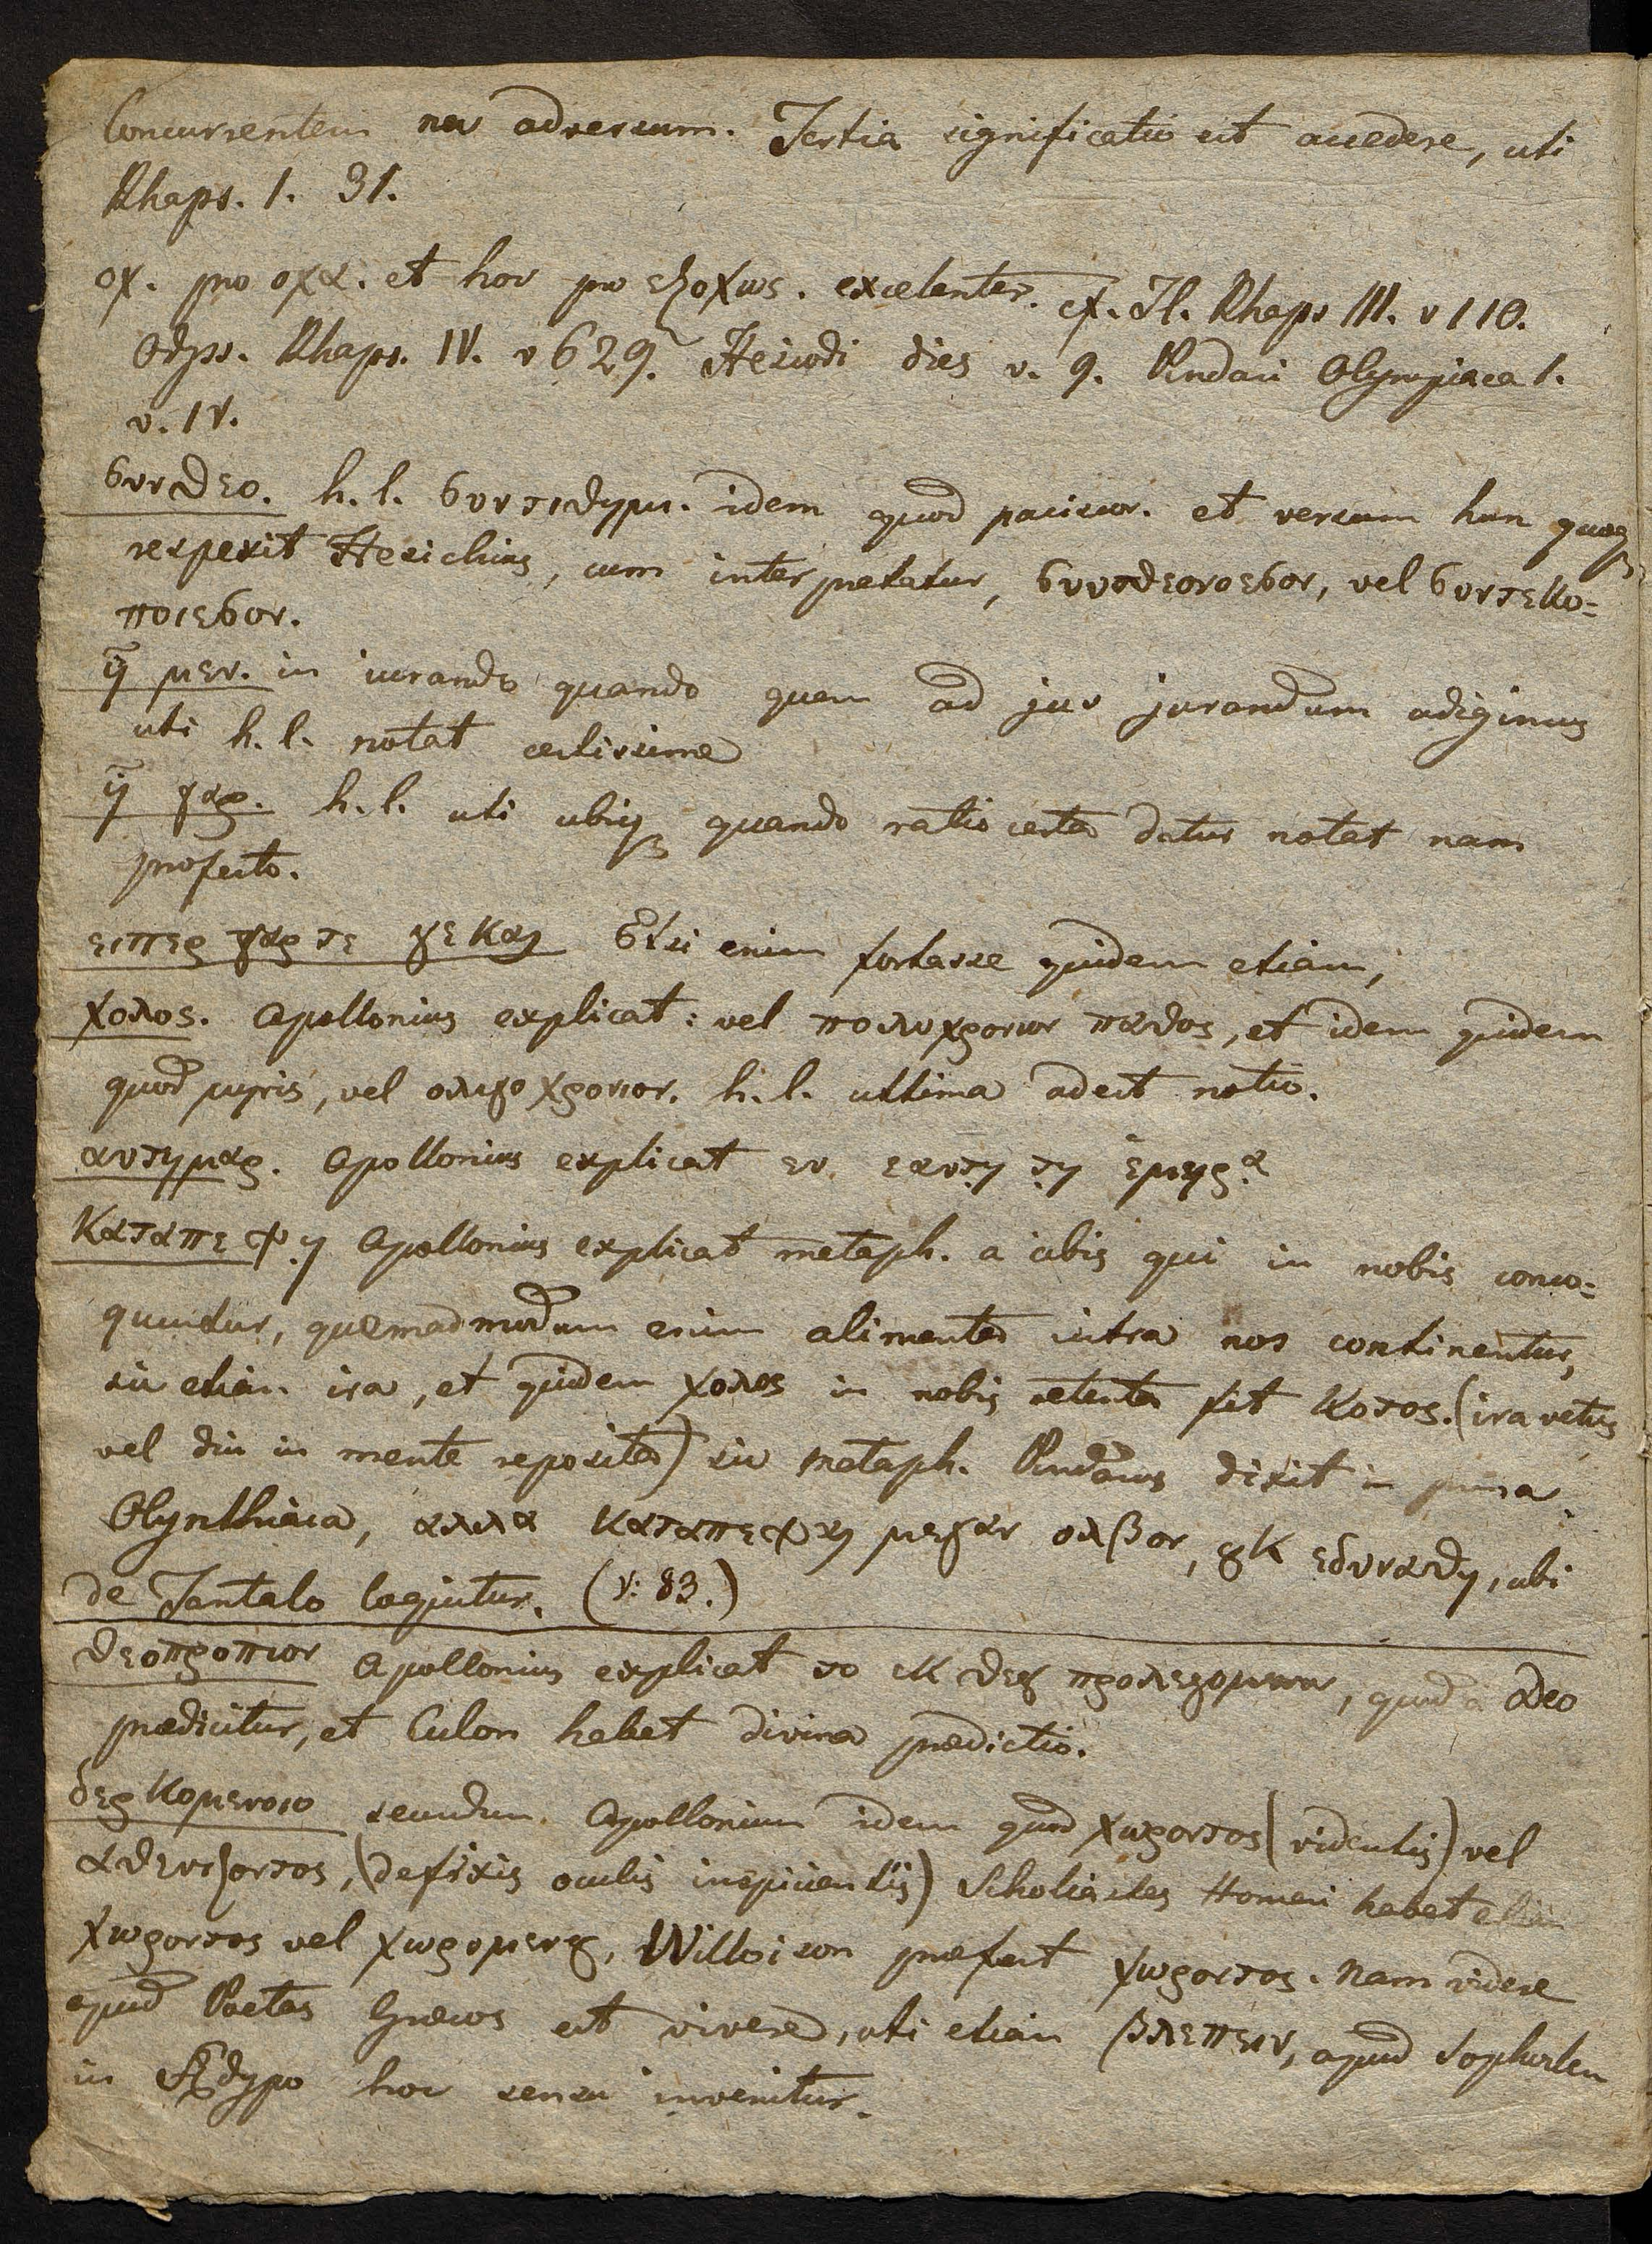 Concurrentem nec adversum. Tertia significatio est accedere, uti
Rhaps. 1. 31.
οχ. pro οχα. et hoc pro εξοχως. excelenter. cf. Il. Rhaps III. v 110.
Odyss. Rhaps. IV. v 629. Hesiodi dies v. 9. Pindari Olympiaca 1.
v. IV.
συνθεο. h. l. συντιθημι. idem quod paciscor. et versum hun quoq
respexit Hesichius, cum interpretatur, vel
ποιεσον.
η μεν. in iurando quando quem ad jus jurandum adigimus
uti h. l. notat certissime
η γαρ. h. l. uti ubiq quando ratio certa datur notat nam
profecto.
ειπερ γαρ τε γε και Etsi enim fortasse quidem etiam,
χολος. Apollonius explicat: vel πολυχρονιον παθος, et idem quidem
quod μηνις, vel ολιγοχρονιον. h. l. ultima adest notio.
αυτημαρ. Apollonius explicat εν εαυτη τη ημερα
καταπεψη Apollonius explicat metaph. a cibis qui in nobis conco=
quuntur, quemadmodum enim alimenta intra nos continentur,
sic etiam ira, et quidem χολος in nobis retenta fit κοτος. (ira vetus
vel diu in mente reposita) sic metaph. Pindarus dixit in prima
Olynthiaca, αλλα καταπεψαι μεγαν ολβον, ȣκ εδυναθη, ubi
de Tantalo loquitur. (v: 83.)
θεοπροπιον Apollonius explicat το εκ θεȣ προλεγομενον, quod a Deo
prædicitur, et Culon habet divina prædictio.
δερκομενοιο secundum Apollonium idem quod χωροντος (videntis) vel
ατενιζοντος, (defixis oculis inspicientis) Scholiastes Homeri habet etiam
χωροντος vel χωρομενȣ, Willoison præfert χωροντος. nam videre
apud Poetas Græcos est vivere, uti etiam βλεπειν, apud Sophoclem
in Ædypo hoc sensu invenitur.